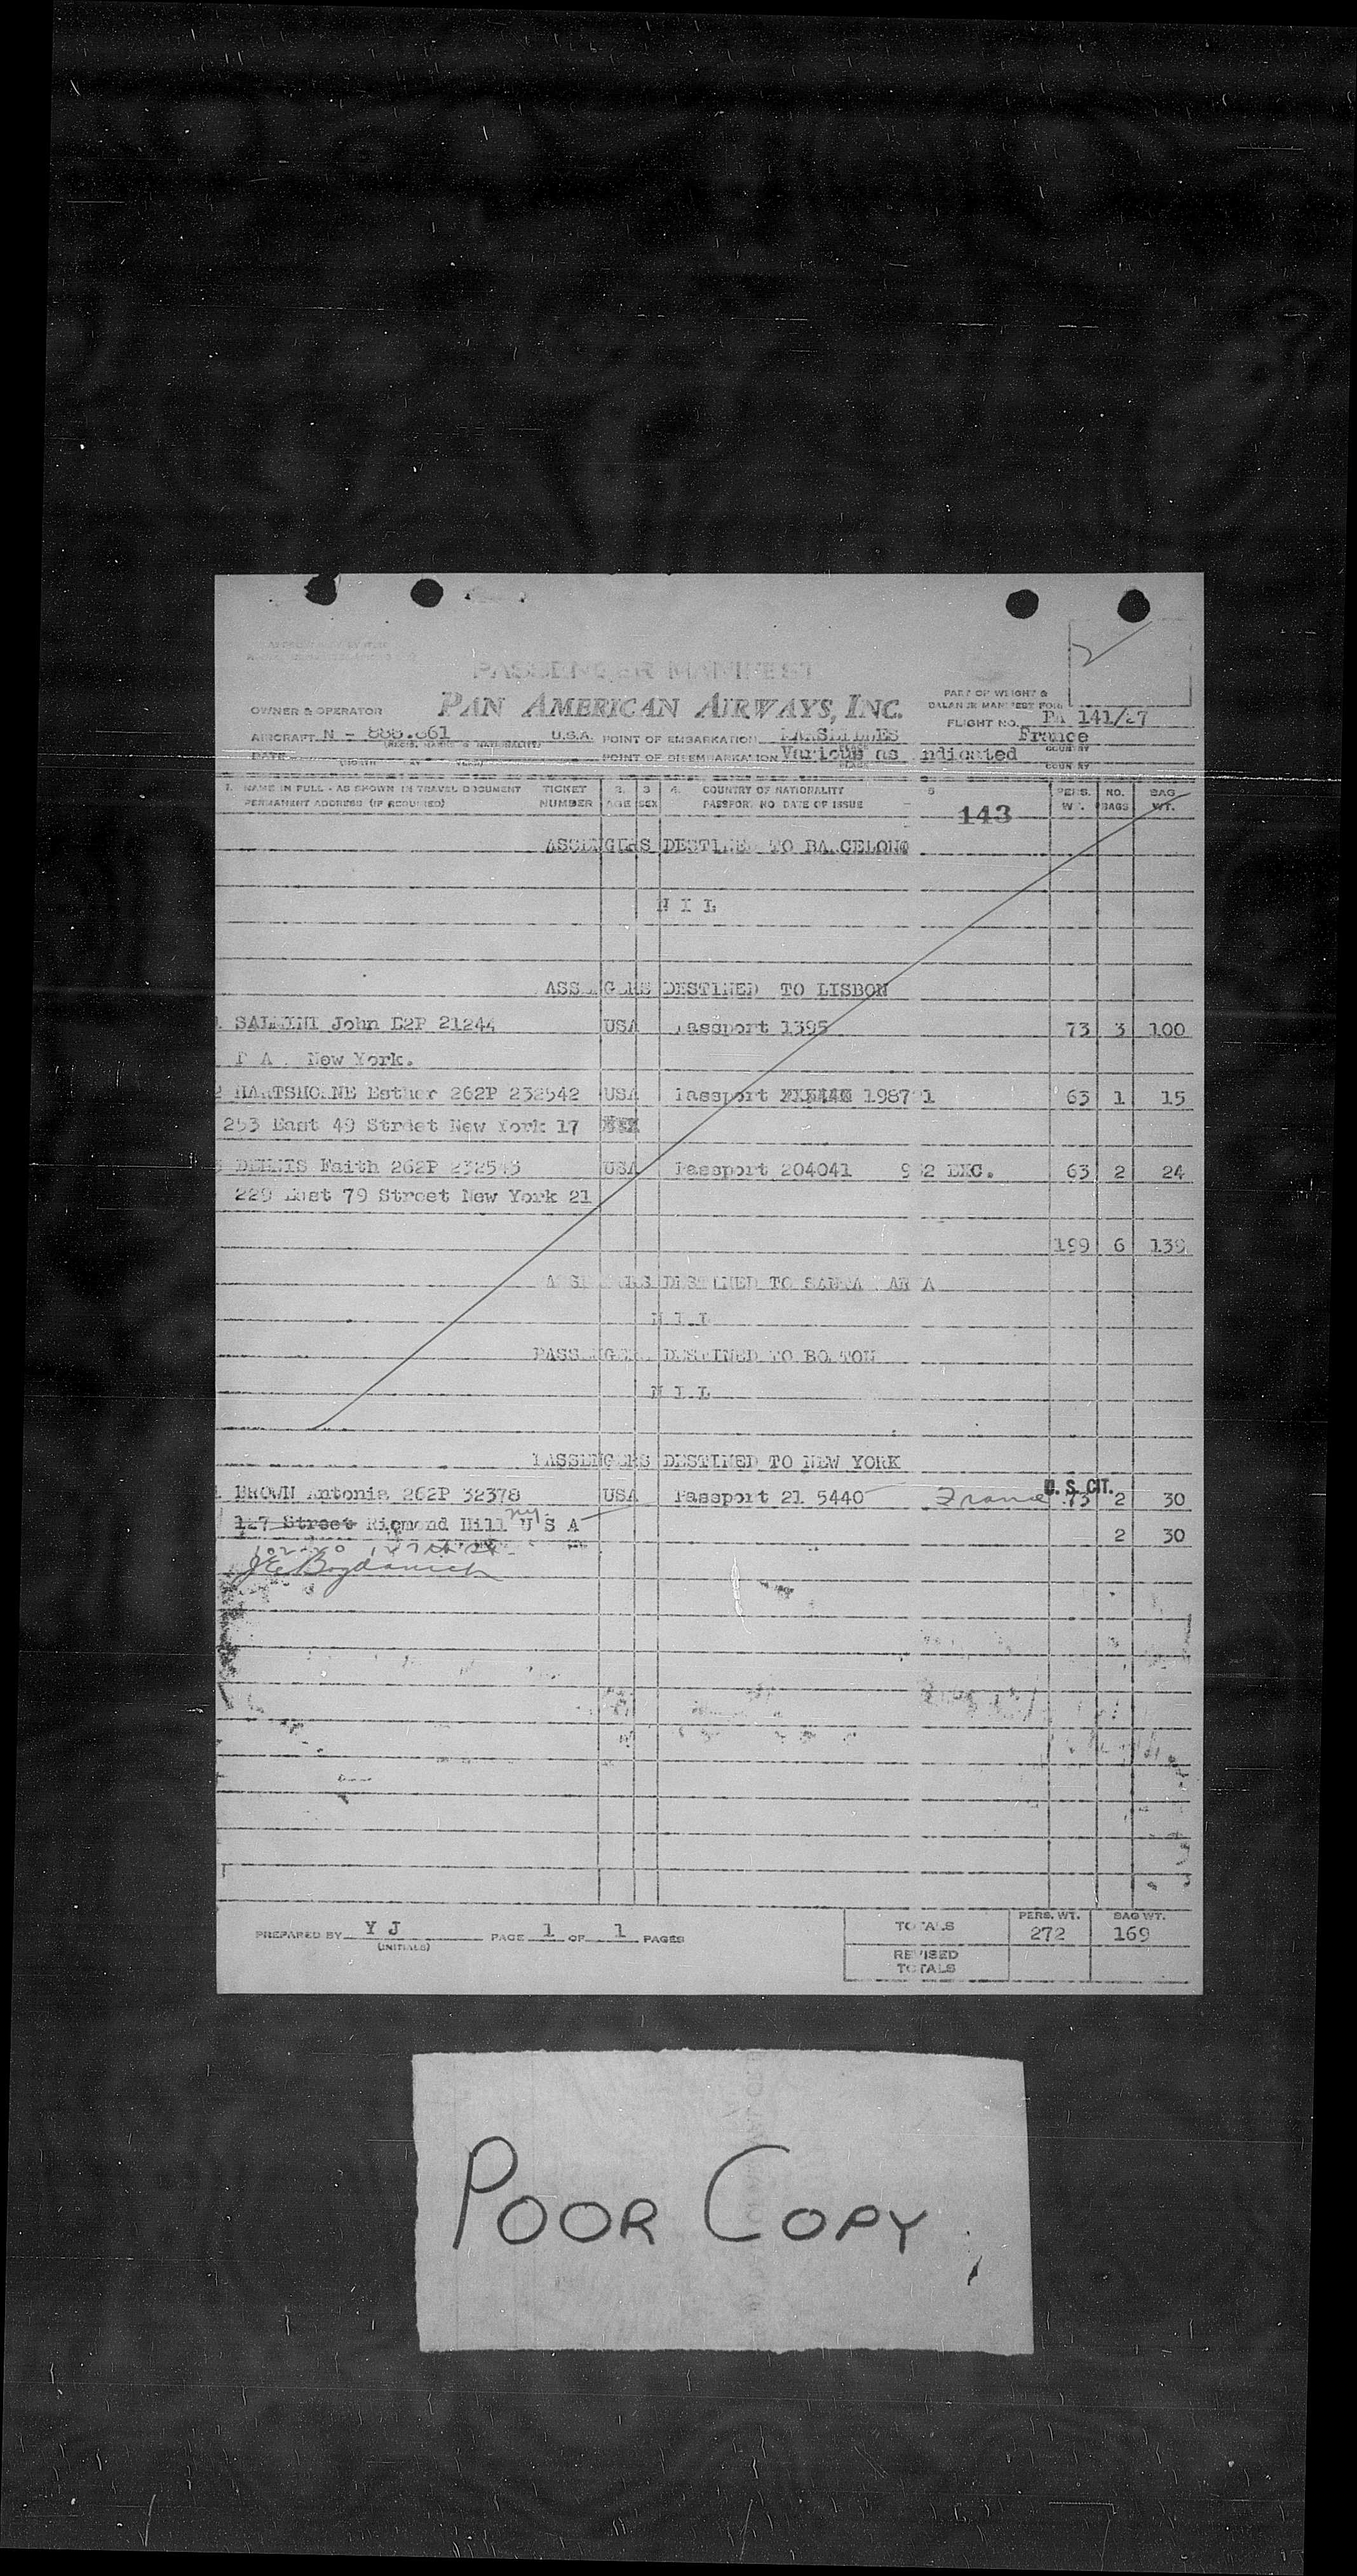 PASSENGER MANIFEST
PAN AMERICAN AIRWAYS, INC.
PART OF WEIGHT &
BALANCE MANIFEST FOR
OWNER & OPERATOR
FLIGHT NO. PA 141/27
AIRCRAFT N - 888.661 U.S.A. POINT OF EMBARKATION MARSEILLES France
DATE POINT OF DISEMBARKATION Various as ndicated
1. NAME IN FULL - AS SHOWN IN TRAVEL DOCUMENT TICKET 2. 3 4. COUNTRY OF NATIONALITY PERS. NO. BAG
PERMANENT ADDRESS (IF REQUIRED) NUMBER AGE SEX PASSPORT NO. DATE OF ISSUE WT. BAGS WT.
143
ASSENGERS DESTINED TO BARCELON
N I L
ASSENGERS DESTINED TO LISBON
John 21244 USA Passport 1395 73 3 100
New York.
2 HARTSHORNE Esther 262P 232542 USA Passport 1987 1 63 1 15
253 East 49 Street New York 17
Faith 262P 232543 USA Passport 204041 9 2 EXC. 63 2 24
229 East 79 Street New York 21
199 6 139
DESTINED TO SANTA MARIA
N I L
PASSENGERS DESTINED TO BOSTON
N I L
PASSENGERS DESTINED TO NEW YORK
U. S. CIT.
BROWN Antonia 262P 32378 USA Passport 21 5440 France 73 2 30
127 Street Rigmond Hill NY U S A 2 30
J E Bogdanich
PREPARED BY Y J PAGE 1 OF 1 PAGES
(INITIALS)
PERS. WT. BAG WT.
TOTALS 272 169
REVISED
TOTALS
POOR COPY